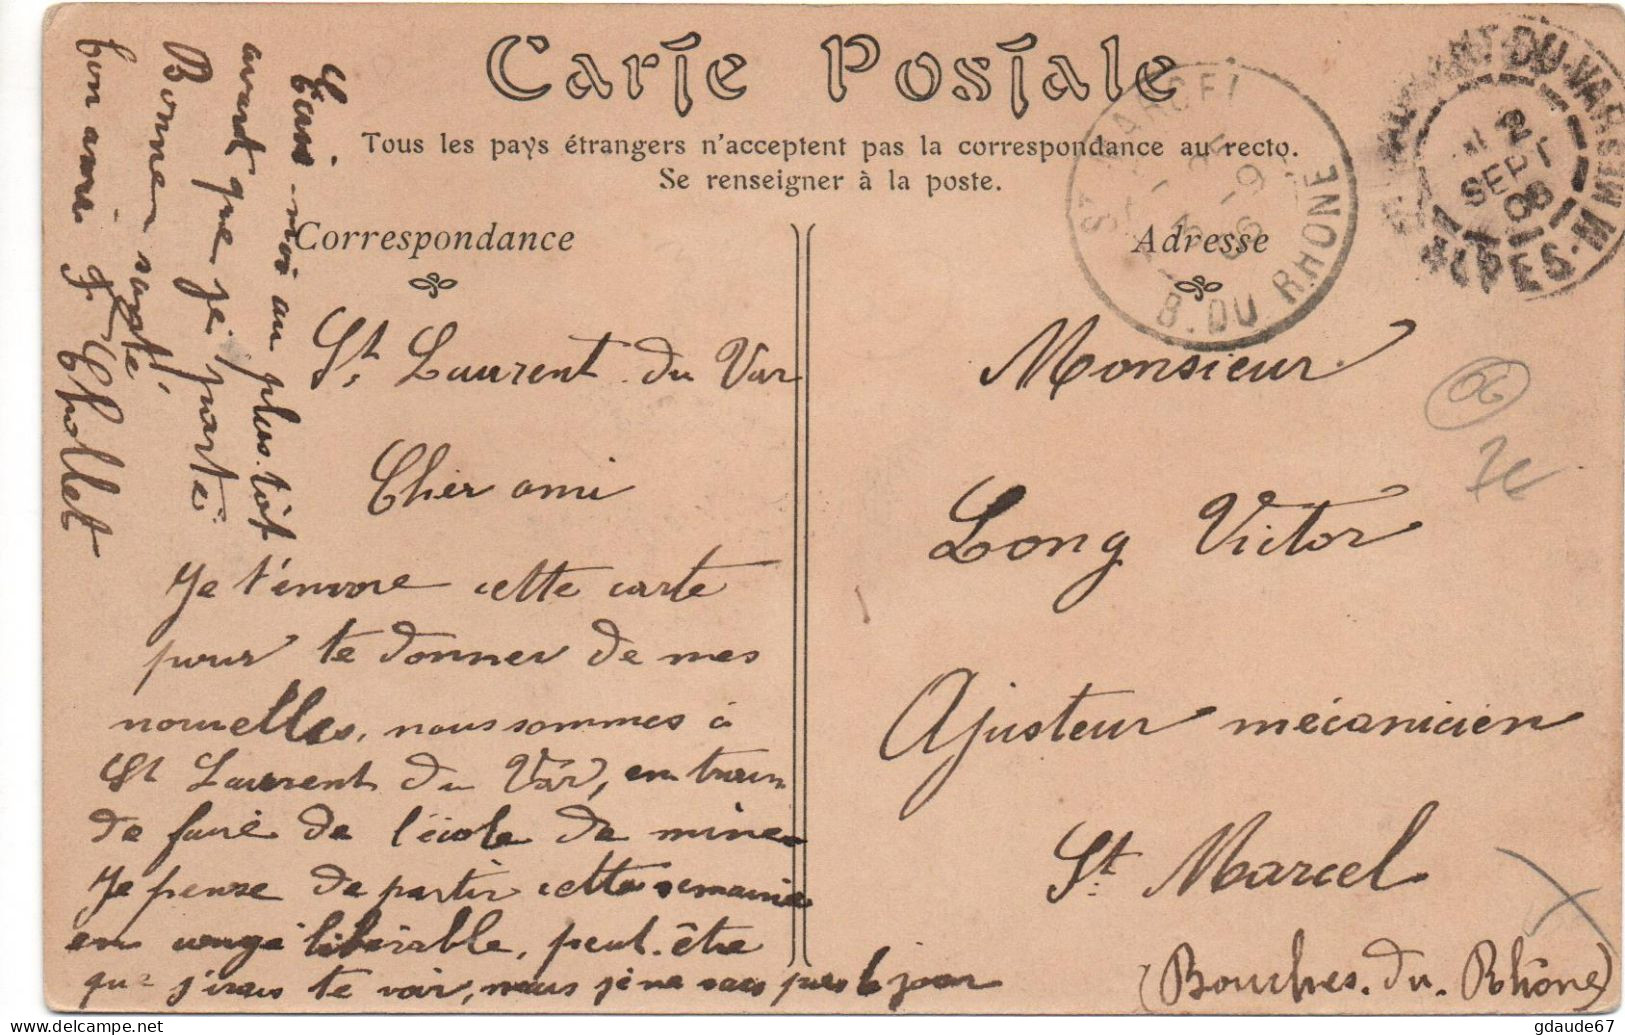 Carte Postale
Tous les pays étrangers n'acceptent pas la correspondance au recto.
Se renseigner à la poste.
Correspondance
Adresse
St Laurent du Var
Cher ami
Je t'envoie cette carte
pour te donner de mes
nouvelles, nous sommes à
St Laurent du Var, en train
de faire de l'école de mines
Je pense de partir cette semaine
en congé libérable, peut-être
que j'irais te voir, mais je ne sais pas le jour
Ecris-moi au plus-tôt
avant que je parte
Bonne santé,
bon ami F Chollet
Monsieur
Long Victor
Ajusteur mécanicien
St Marcel
(Bouches.du.Rhône)
ST MARCEL
B. DU RHONE
ST LAURENT-DU-VAR
2
SEPT
06
ALPES-M
06
7€
gdaude67